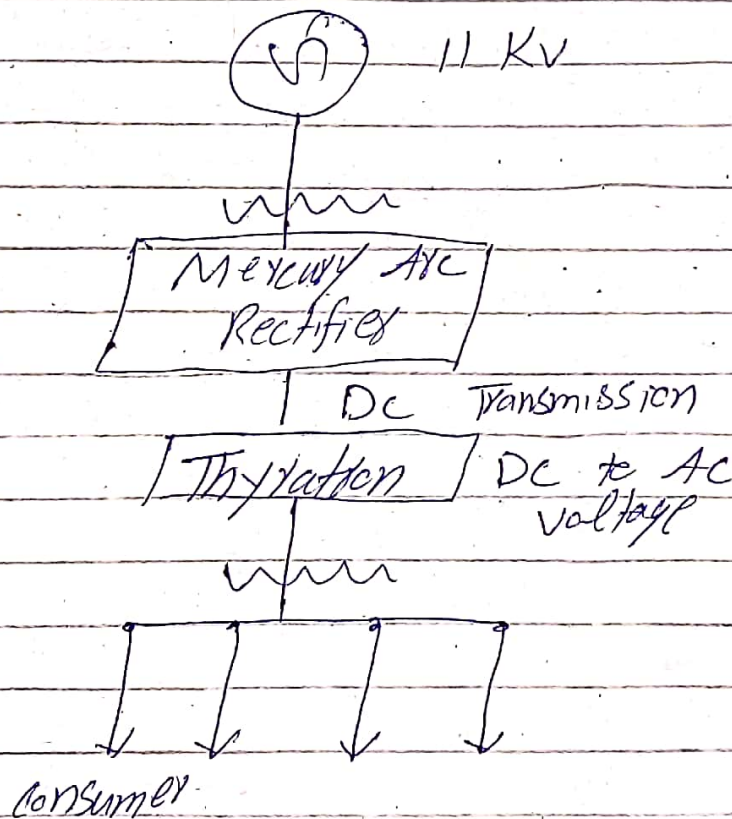 11 KV
Mercury Arc
Rectifier
DC Transmission
Thyratron
DC to AC
Voltage
Consumer